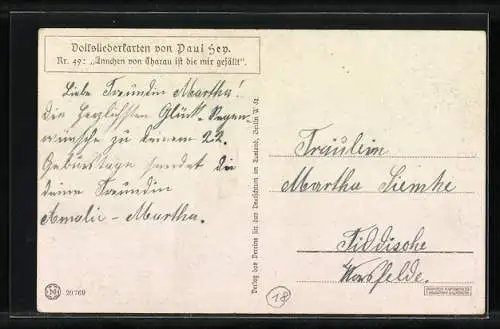 Volksliederkarten von Paul Hey.
Nr. 49: „Ännchen von Tharau ist die mir gefällt".
Liebe Freundin Martha!
Die herzlichsten Glück- Segen-
wünsche zu deinem 22.
Geburtstage sendet dir
deine Freundin
Amalie - Martha.
Verlag des Vereins für das Deutschtum im Ausland, Berlin W 62
Fräulein
Martha Siemke
Tiddische
Vorsfelde.
20760
18